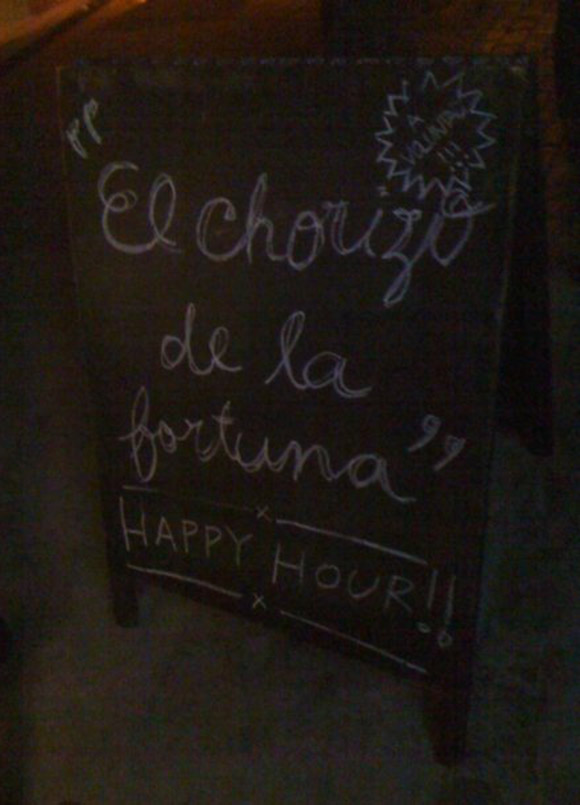 A
VOLUNTAD
!!!
"El chorizo
de la
fortuna"
HAPPY HOUR!!